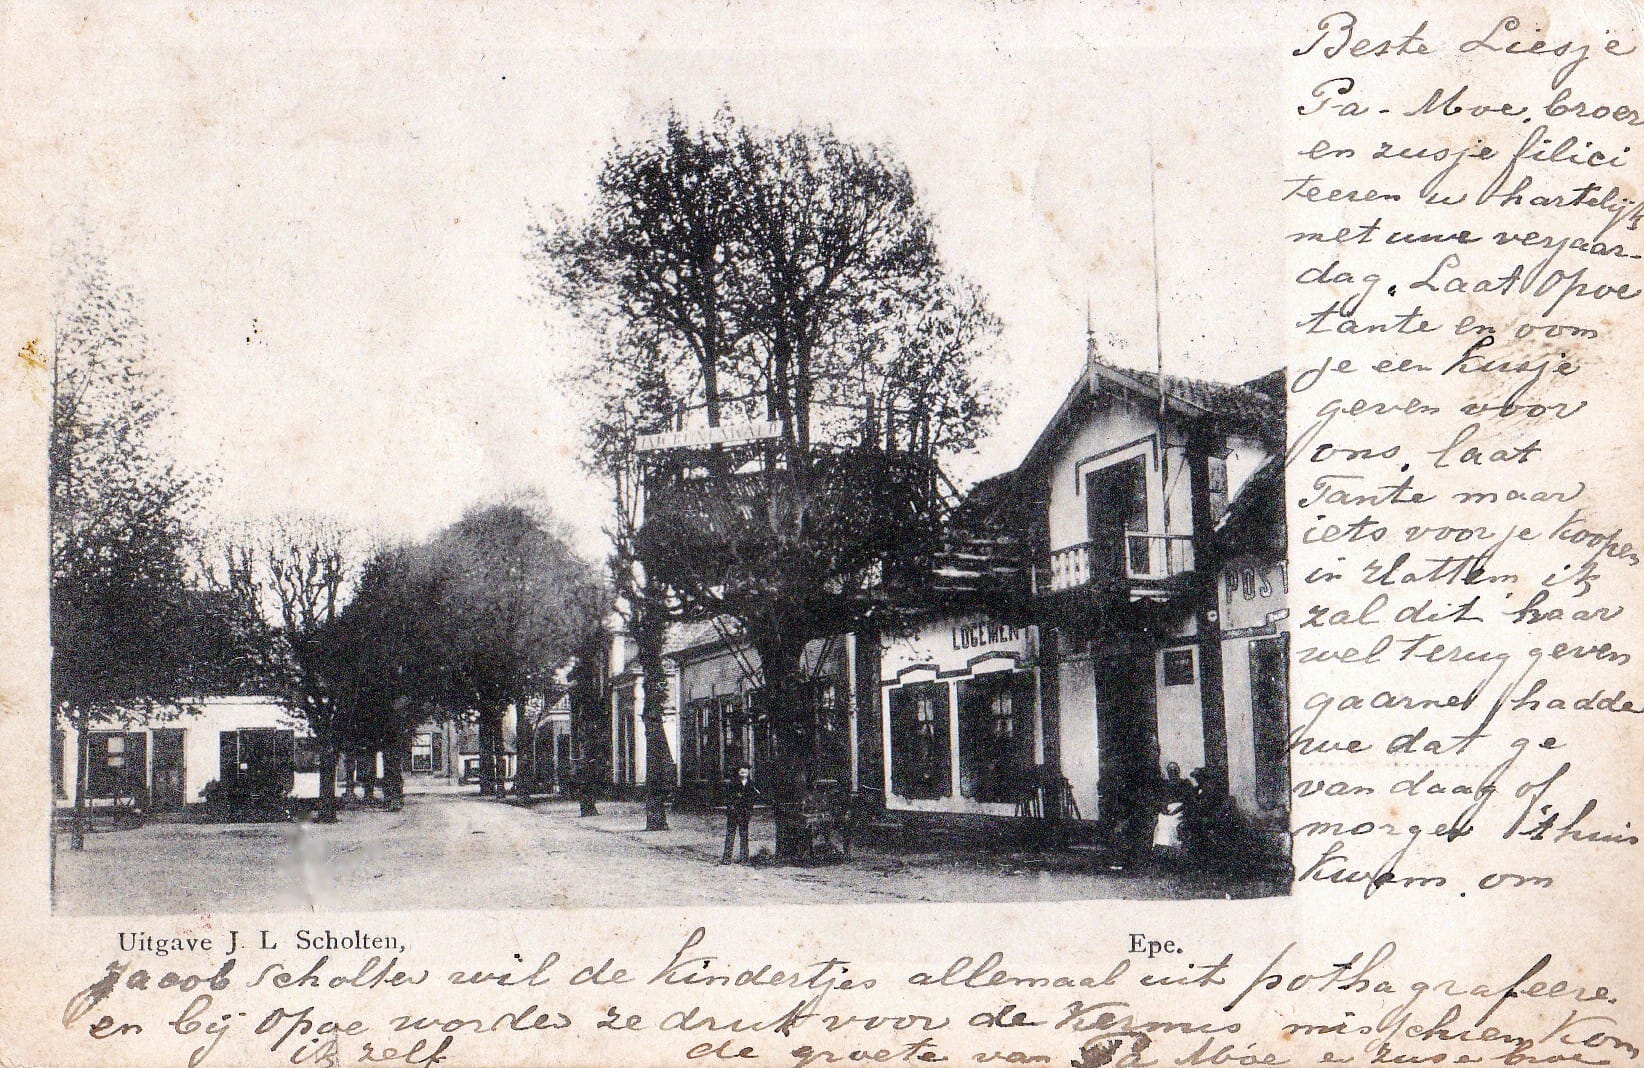 Beste Liesje
Pa - Moe, broer
en zusje filici
teeren u hartelijk
met uwe verjaar-
dag. Laat Opoe
tante en oom
je een kusje
geven voor
ons. laat
Tante maar
iets voor je koopen
in Hattem ik
zal dit haar
wel terug geven
gaarne hadde
we dat ge
van daag of
morgen t'huis
kwam. om
LOGEMEN
POST
Uitgave J. L Scholten,
Epe.
Jacob Scholten wil de kindertjes allemaal uit pothagrafeere
en bij Opoe worden ze druk voor de Kermis misschien kom
ik zelf de groete van Pa Moe e zuse broe